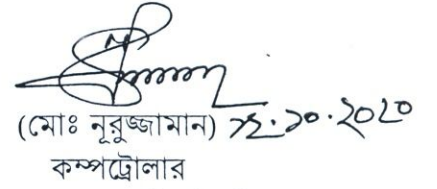 (মোঃ নূরুজ্জামান) ১২.১০.২০২০
কম্পট্রোলার